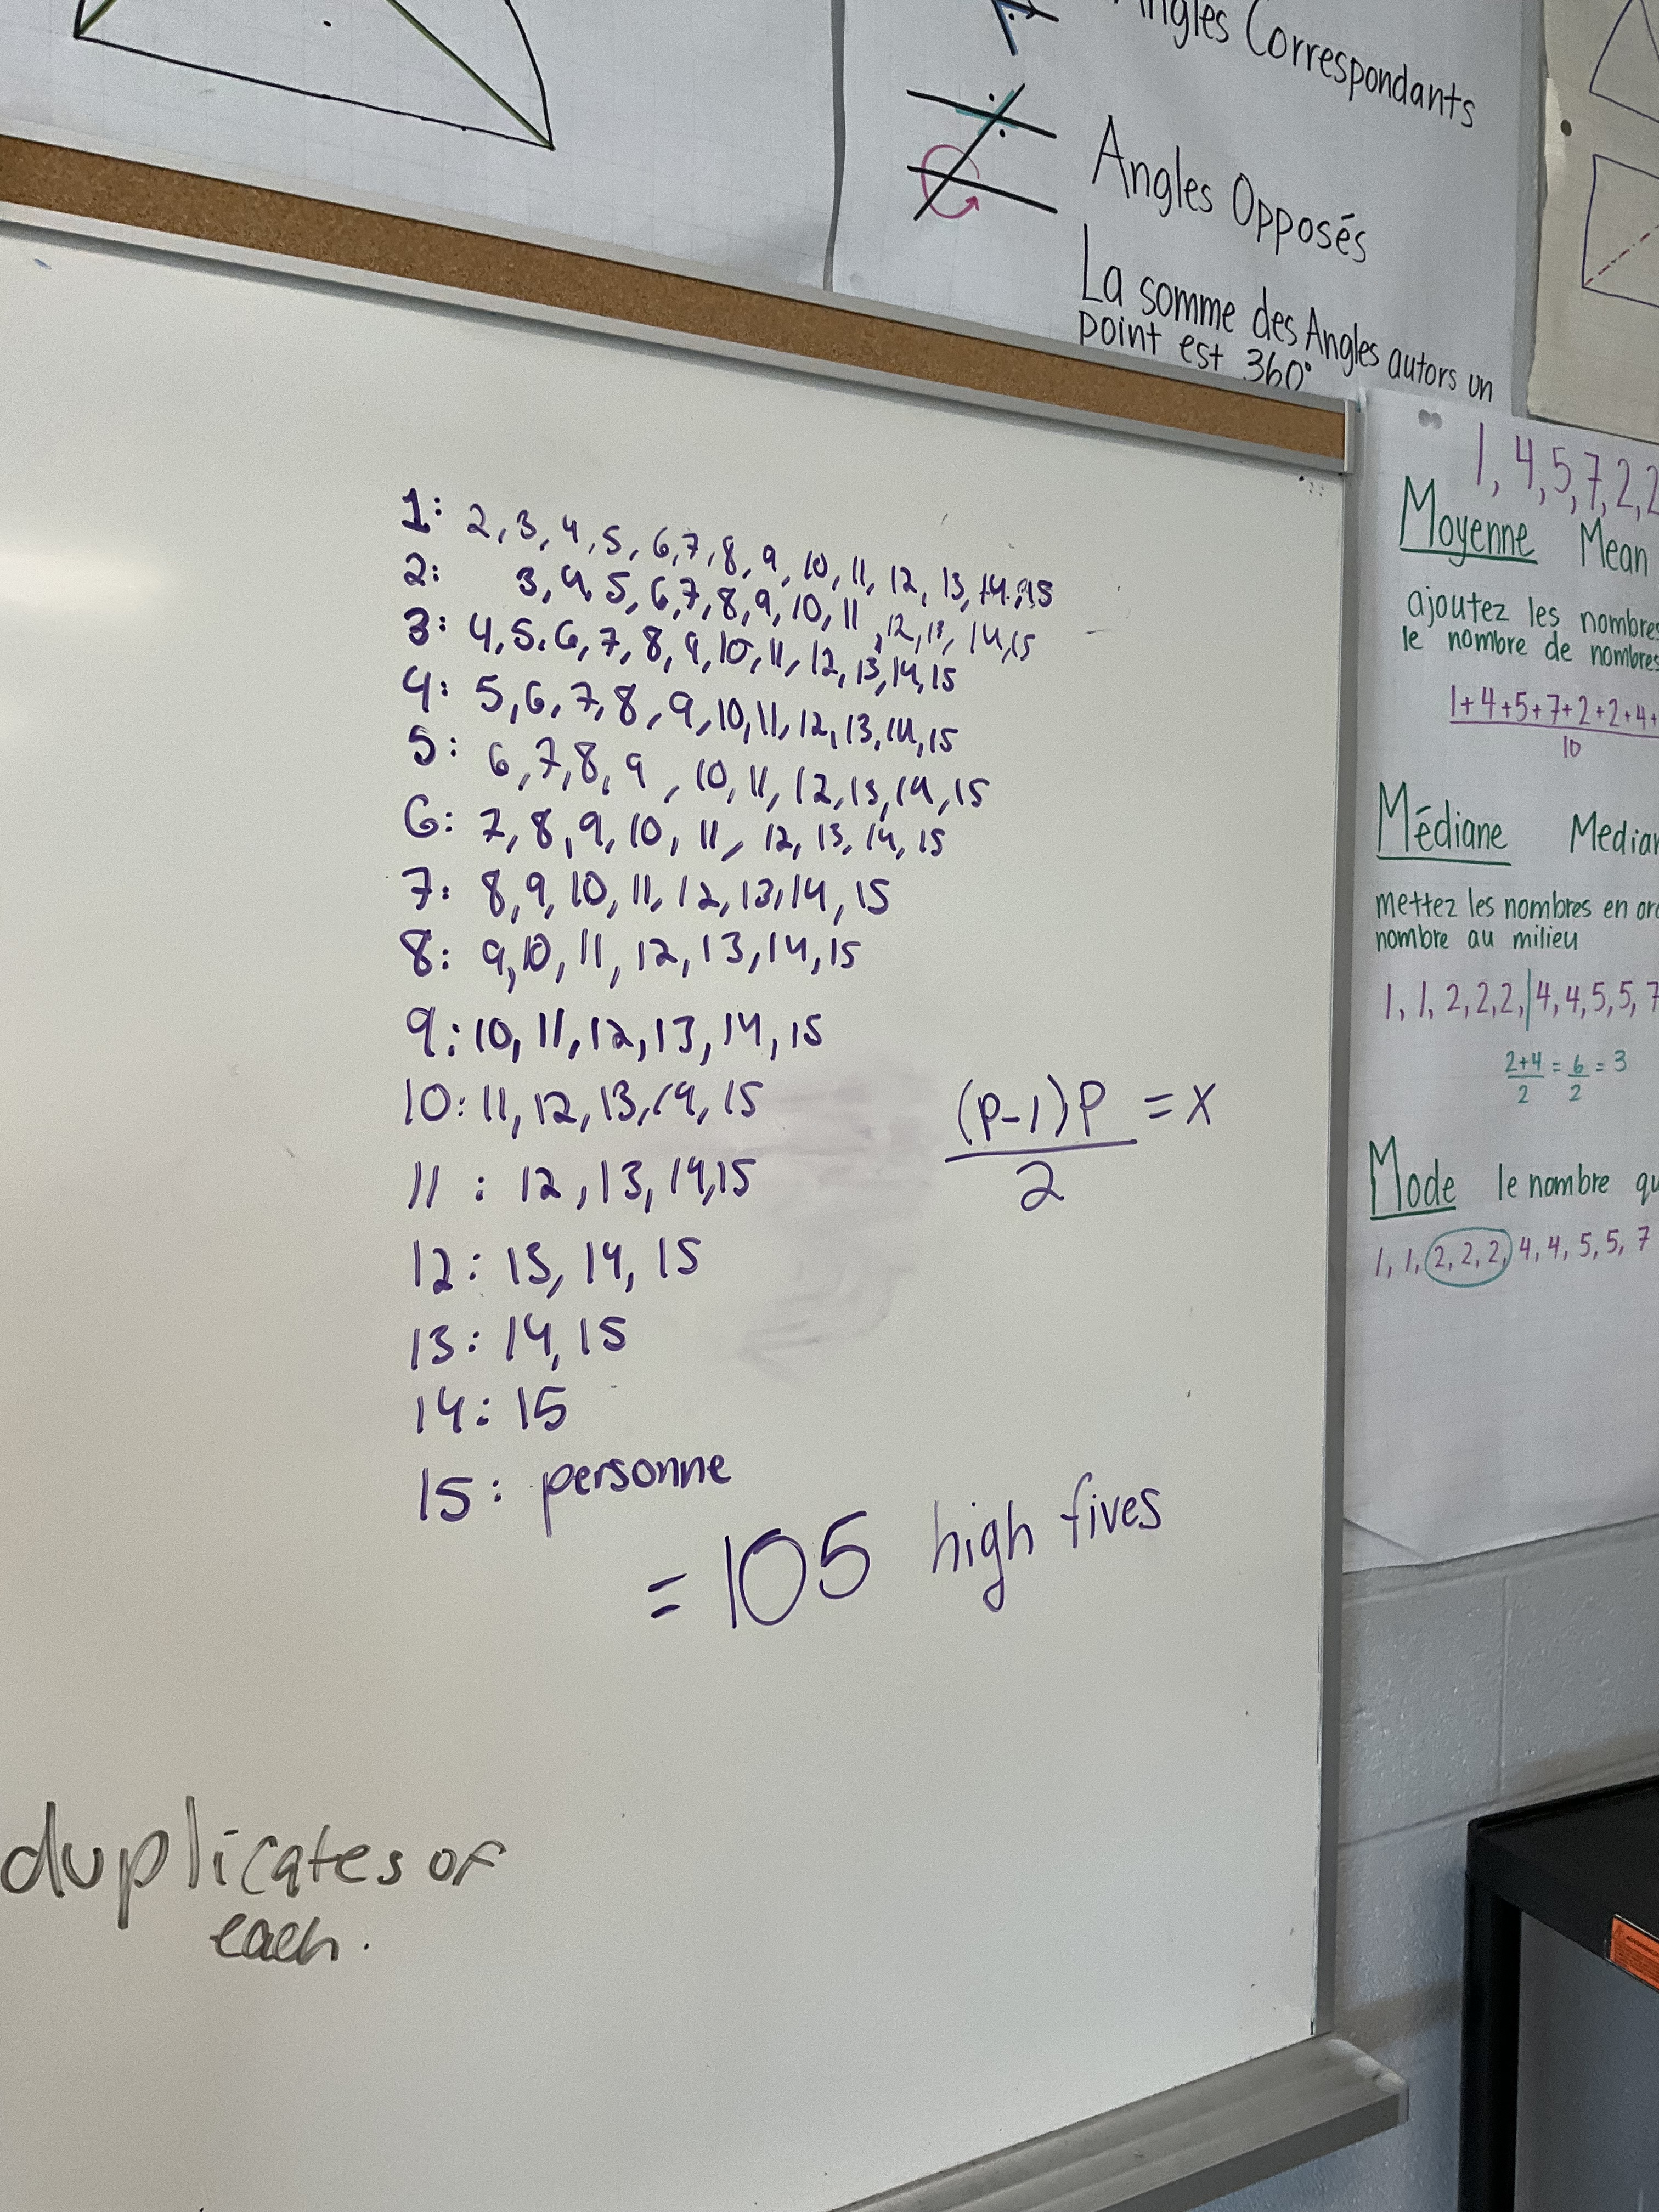 Angles Correspondants
Angles Opposés
La somme des Angles autors un
point est 360°
1: 2, 3, 4, 5, 6, 7, 8, 9, 10, 11, 12, 13, 14, 15
2: 3, 4, 5, 6, 7, 8, 9, 10, 11, 12, 13, 14, 15
3: 4, 5, 6, 7, 8, 9, 10, 11, 12, 13, 14, 15
4: 5, 6, 7, 8, 9, 10, 11, 12, 13, 14, 15
5: 6, 7, 8, 9, 10, 11, 12, 13, 14, 15
6: 7, 8, 9, 10, 11, 12, 13, 14, 15
7: 8, 9, 10, 11, 12, 13, 14, 15
8: 9, 10, 11, 12, 13, 14, 15
9: 10, 11, 12, 13, 14, 15
10: 11, 12, 13, 14, 15
11: 12, 13, 14, 15
12: 13, 14, 15
13: 14, 15
14: 15
15: personne
= 105 high fives
(P-1)P = x
2
duplicates of
each.
1, 4, 5, 7, 2, 2
Moyenne Mean
ajoutez les nombres
le nombre de nombres
1+4+5+7+2+2+4+
10
Médiane Median
mettez les nombres en
nombre au milieu
1, 1, 2, 2, 2, | 4, 4, 5, 5, 7
2+4 = 6 = 3
2 2
Mode le nombre
1, 1, 2, 2, 2, 4, 4, 5, 5, 7